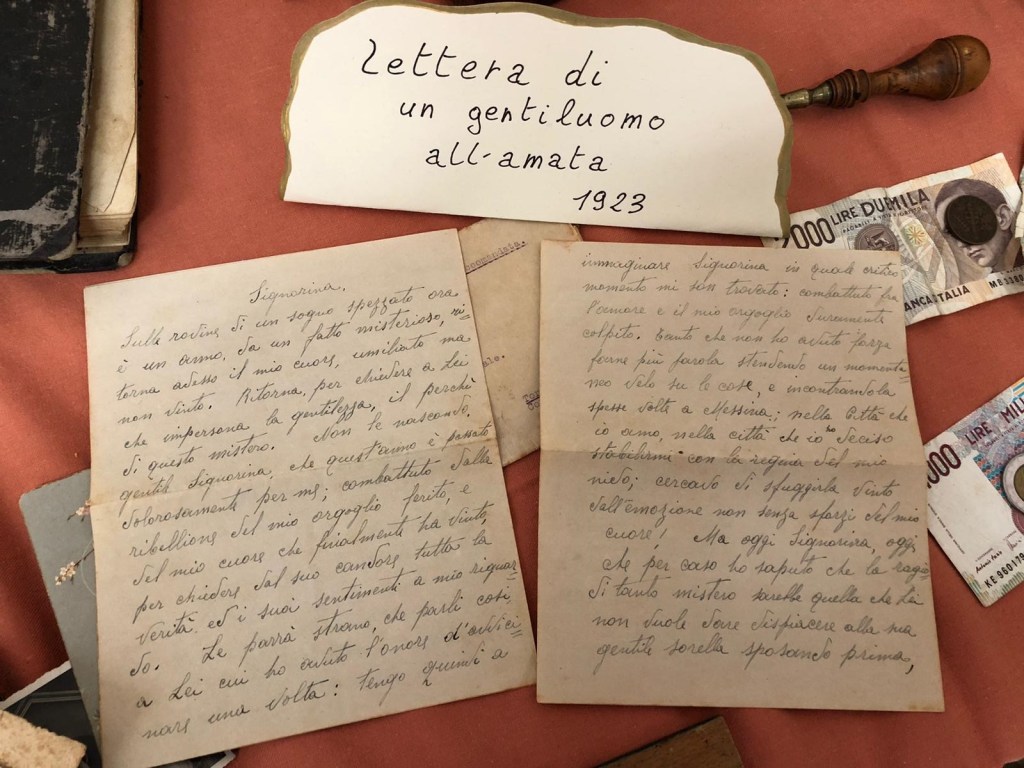 Lettera di
un gentiluomo
all-amata
1923
Signorina.
Sulle rovine di un sogno spezzato ora
è un anno, da un fatto misterioso, ri-
torna adesso il mio cuore, umiliato ma
non vinto. Ritorna, per chiedere a Lei
che impersona la gentilezza, il perchè
di questo mistero. Non le nascondo,
gentile Signorina, che quest'anno è passato
dolorosamente per me; combattuto dalla
ribellione del mio orgoglio ferito, e
del mio cuore che finalmente ha vinto,
per chiedere dal suo candore tutta la
verità, ed i suoi sentimenti a mio riguar-
do. Le parrà strano, che parli così
a Lei cui ho avuto l'onore d'avvici-
nare una volta: tengo quindi a
immaginare, Signorina in quale critico
momento mi son trovato: combattuto fra
l'amore e il mio orgoglio duramente
colpito. Tanto che non ho avuto forza
farne più parola stendendo un momenta-
neo velo su le cose, e incontrandola
spesse volte a Messina; nella Città che
io amo, nella città che io ho deciso
stabilirmi con la regina del mio
nido; cercavo di sfuggirla vinto
dall'emozione non senza sforzi del mio
cuore! Ma oggi Signorina, oggi
che per caso ho saputo che la ragio
di tanto mistero sarebbe quella che Lei
non vuole dare dispiacere alla sua
gentile sorella sposando prima,
LIRE DUEMILA
BANCA D'ITALIA
LIRE MILLE
KE 960179